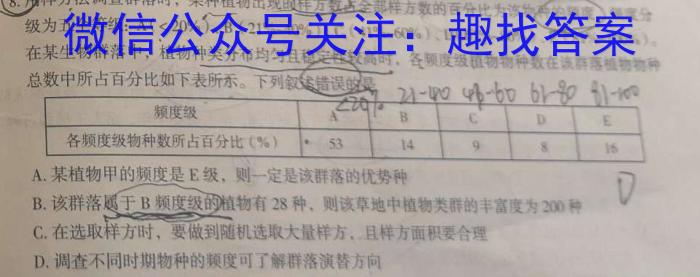 8.用样方法调查群落时，某种植物出现的样方数占全部样方数的百分比为该物种的频度，频度分
微信公众号关注：趣找答案
在某生物群落中，植物种类分布均匀且稳定性较高时，各频度级植物物种数在该群落植物物种
总数中所占百分比如下表所示。下列叙述错误的是
<20% 21-40 61-80 81-100
频度级 A B C D E
各频度级物种数所占百分比（%） 53 14 9 8 16
A.某植物甲的频度是E级，则一定是该群落的优势种
B.该群落属于B频度级的植物有28种，则该草地中植物类群的丰富度为200种
C.在选取样方时，要做到随机选取大量样方，且样方面积要合理
D.调查不同时期物种的频度可了解群落演替方向